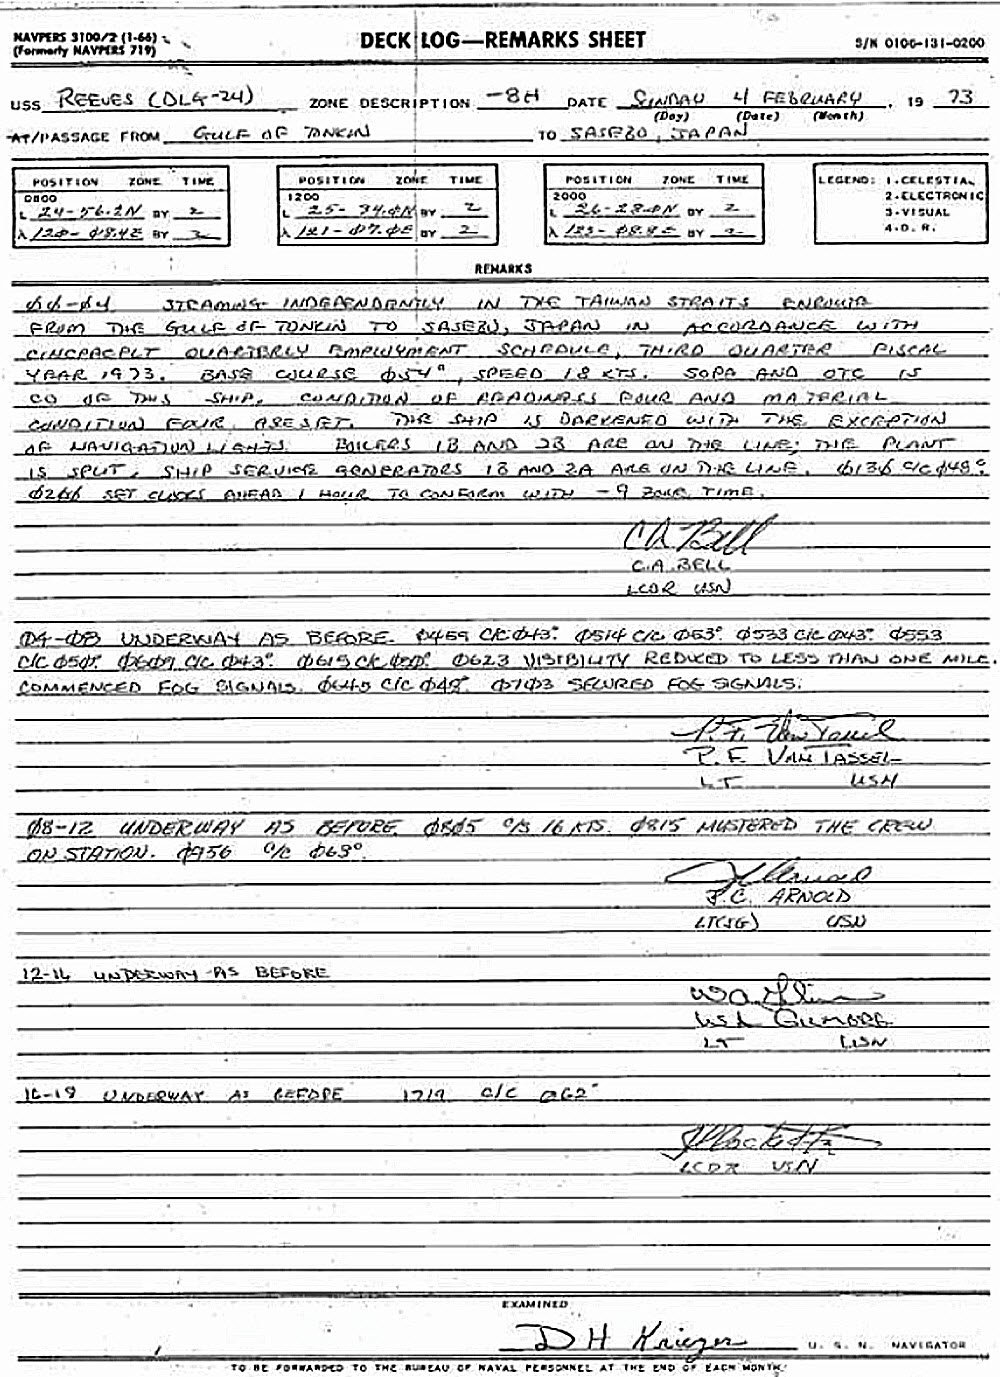 NAVPERS 3100/2 (1-66)
(Formerly NAVPERS 719)
DECK LOG—REMARKS SHEET
S/N 0106-131-0200
USS REEVES (DLG-24) ZONE DESCRIPTION -8H DATE SUNDAY 4 FEBRUARY, 19 73
(Day) (Date) (Month)
AT/PASSAGE FROM GULF OF TONKIN TO SASEBO, JAPAN
POSITION ZONE TIME
0800
L 24-56.2N BY 2
λ 120-Ø8.4E BY 2
POSITION ZONE TIME
1200
L 25-34.0N BY 2
λ 121-Ø7.0E BY 2
POSITION ZONE TIME
2000
L 26-28.0N BY 2
λ BY 2
LEGEND: 1-CELESTIAL
2-ELECTRONIC
3-VISUAL
4-D. R.
REMARKS
ØØ-Ø4 STEAMING INDEPENDENTLY IN THE TAIWAN STRAITS ENROUTE
FROM THE GULF OF TONKIN TO SASEBO, JAPAN IN ACCORDANCE WITH
CINCPACFLT QUARTERLY EMPLOYMENT SCHEDULE, THIRD QUARTER FISCAL
YEAR 1973. BASE COURSE Ø54°, SPEED 18 KTS. SOPA AND OTC IS
CO OF THIS SHIP. CONDITION OF READINESS FOUR AND MATERIAL
CONDITION FOUR ARE SET. THE SHIP IS DARKENED WITH THE EXCEPTION
OF NAVIGATION LIGHTS. BOILERS 1B AND 2B ARE ON THE LINE; THE PLANT
IS SPLIT. SHIP SERVICE GENERATORS 1B AND 2A ARE ON THE LINE. Ø136 C/C Ø48°.
Ø2ØØ SET CLOCKS AHEAD 1 HOUR TO CONFORM WITH -9 ZONE TIME.
CA Bell
C.A. BELL
LCDR USN
Ø4-Ø8 UNDERWAY AS BEFORE. Ø459 C/C Ø43°. Ø514 C/C Ø53°. Ø533 C/C Ø43°. Ø553
C/C Ø50°. Ø609 C/C Ø43°. Ø615 C/C Ø623 VISIBILITY REDUCED TO LESS THAN ONE MILE.
COMMENCED FOG SIGNALS. Ø645 C/C Ø48° Ø7Ø3 SECURED FOG SIGNALS.
P. F. Van Tassel
P. F. VAN TASSEL
LT USN
Ø8-12 UNDERWAY AS BEFORE. Ø8Ø5 C/S 16 KTS. Ø815 MUSTERED THE CREW
ON STATION. Ø956 C/C Ø63°.
J C Arnold
J.C. ARNOLD
LT(JG) USN
12-16 UNDERWAY AS BEFORE
GILMORE
LT USN
16-18 UNDERWAY AS BEFORE 1719 C/C Ø62°
LCDR USN
EXAMINED
D H Krieger U. S. N. NAVIGATOR
TO BE FORWARDED TO THE BUREAU OF NAVAL PERSONNEL AT THE END OF EACH MONTH.